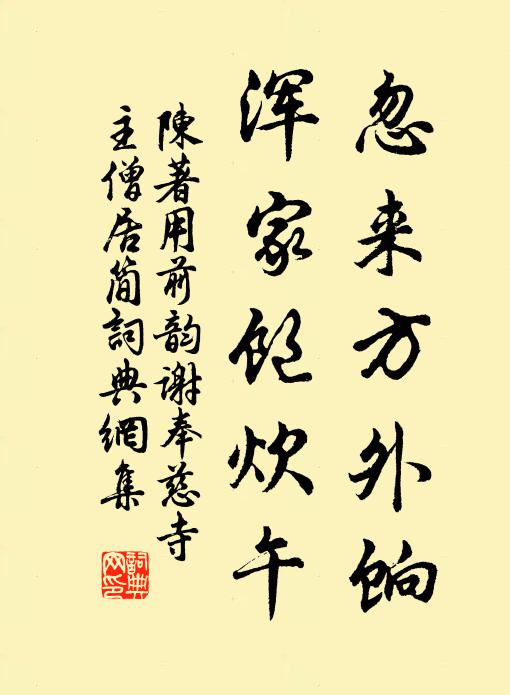 忽来方外饷
浑家饱炊午
陳著用前韵谢奉慈寺
主僧居简詞典網集
詞典网印